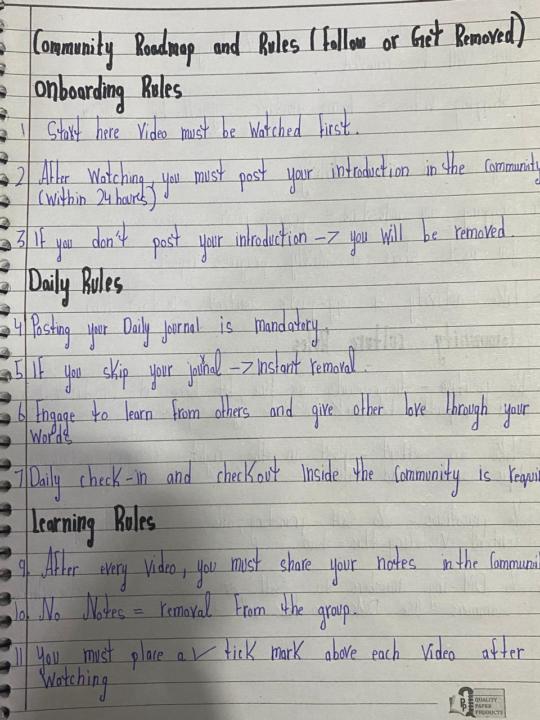 Community Roadmap and Rules (Follow or Get Removed)
Onboarding Rules
1 Start here Video must be Watched first.
2 After Watching, you must post your introduction in the Community
(Within 24 hours)
3 If you don't post your introduction -> you will be removed.
Daily Rules
4 Posting your Daily Journal is mandatory
5 If you skip your journal -> Instant removal.
6 Engage to learn from others and give other love through your
Words
7 Daily check-in and checkout Inside the Community is requi
Learning Rules
9. After every Video, you must share your notes in the Communi
10. No Notes = removal From the group.
11 You must place a ✓ tick mark above each Video after
Watching
QUALITY
PAPER
PRODUCTS